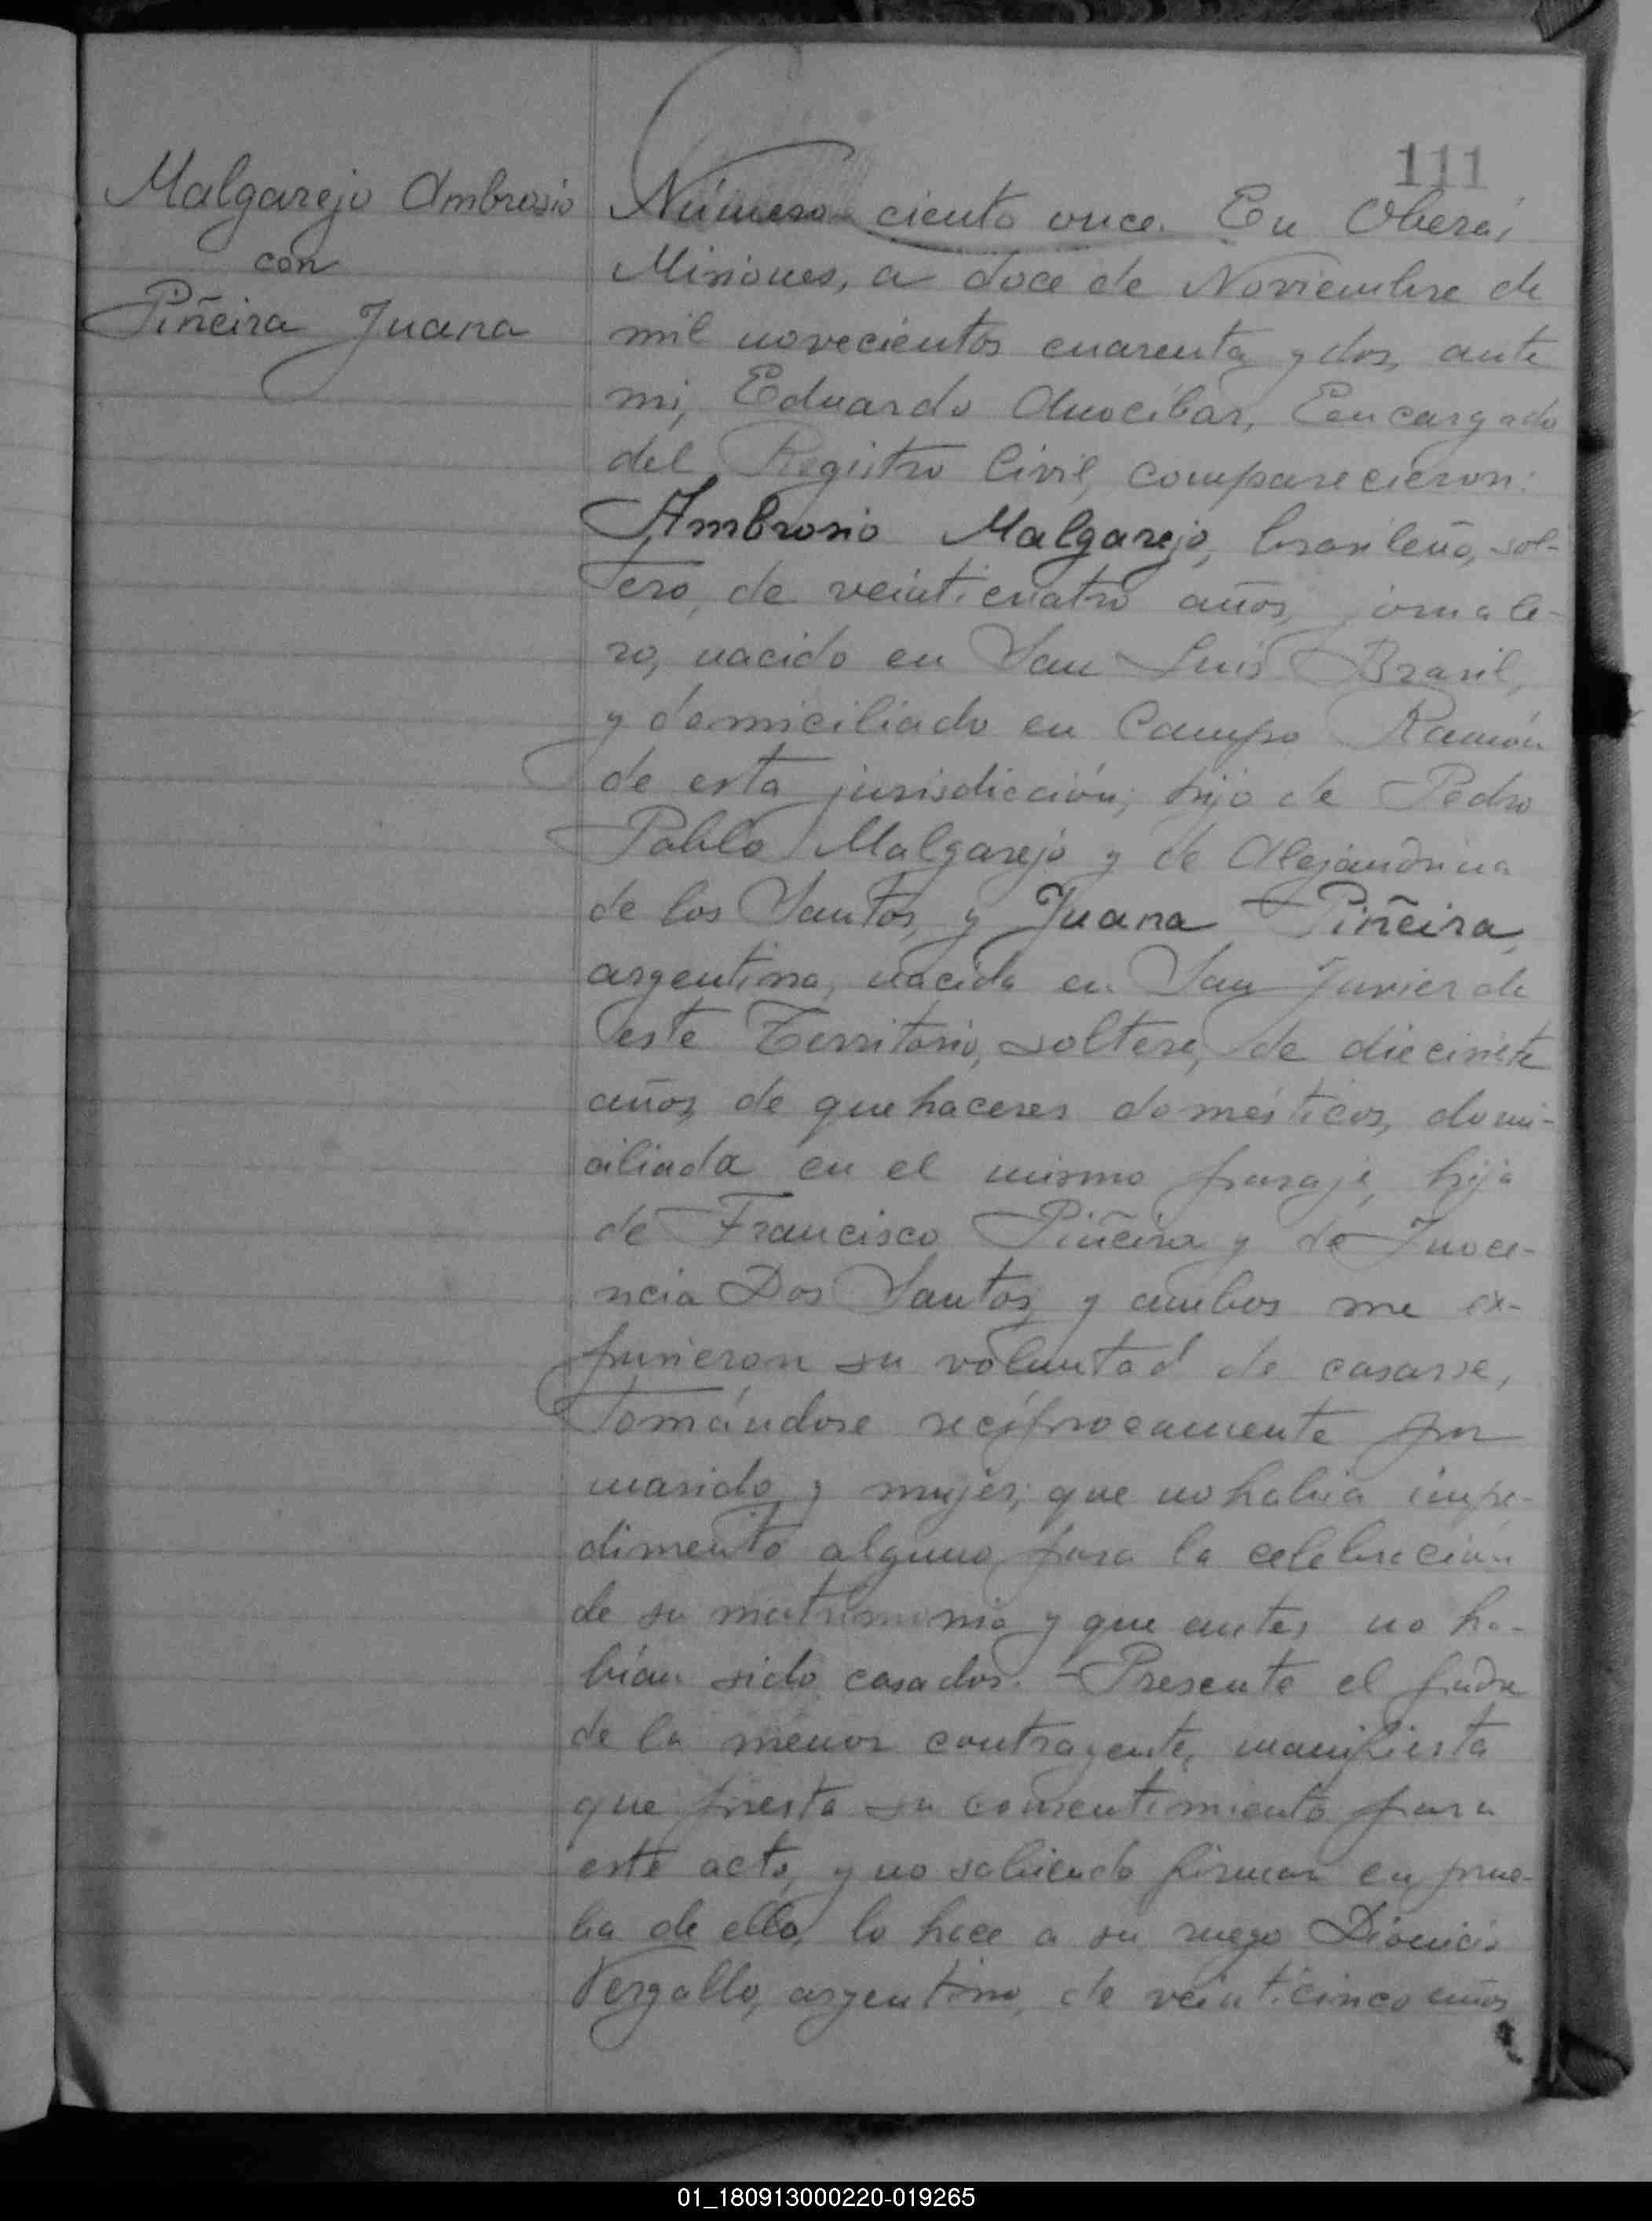 111
Malgarejo Ambrosio
con
Piñeira Juana
Número ciento once. En Oberá,
Misiones, a doce de Noviembre de
mil novecientos cuarenta y dos, ante
mi, Eduardo Anocíbar, Encargado
del Registro Civil, comparecieron:
Ambrosio Malgarejo, brasileño, sol-
tero, de veinticuatro años, jornale-
ro, nacido en San Luis Brasil,
y domiciliado en Campo Ramón
de esta jurisdicción; hijo de Pedro
Pablo Malgarejo y de Alejandrina
de los Santos, y Juana Piñeira,
argentina, nacida en San Javier de
este Territorio, soltera, de diecisiete
años, de quehaceres domésticos, domi-
ciliada en el mismo paraje, hija
de Francisco Piñeira y de Inoce-
ncia Dos Santos, y ambos me ex-
pusieron su voluntad de casarse,
tomándose recíprocamente por
marido y mujer; que no había impe-
dimento alguno para la celebración
de su matrimonio y que antes no ha-
bían sido casados. - Presente el padre
de la menor contrayente, manifiesta
que presta su consentimiento para
este acto, y no sabiendo firmar en prue-
ba de ello, lo hace a su ruego Dionicio
Vergallo, argentino, de veinticinco años
01_180913000220-019265